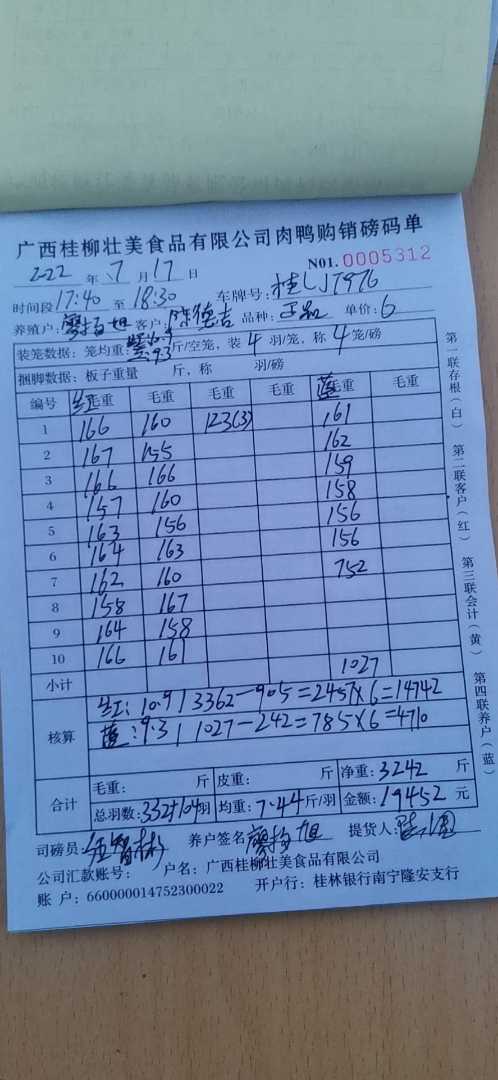 广西桂柳壮美食品有限公司肉鸭购销磅码单
2022 年 7 月 17 日 N01. 0005312
时间段 17:40 至 18:30 车牌号: 桂LJ7976
养殖户: 廖扬旭 客户: 陈德吉 品种: 单价: 6
装笼数据: 笼均重: 9.3 斤/空笼, 装 4 羽/笼, 称 4 笼/磅
捆脚数据: 板子重量 斤, 称 羽/磅
编号 红毛重 毛重 毛重 毛重 蓝毛重 毛重
1 166 160 123(3) 161
2 167 155 162
3 166 166 159
4 157 160 158
5 163 156 156
6 164 163 156
7 162 160 752
8 158 167
9 164 158
10 166 161
小计 1027
核算 红: 10.9 | 3362-905=2457×6=14742
蓝: 9.3 | 1027-242=785×6=4710
合计 毛重: 斤 皮重: 斤 净重: 3242 斤
总羽数: 332+104羽 均重: 7.44 斤/羽 金额: 19452 元
司磅员: 养户签名 廖扬旭 提货人:
公司汇款账号: 户名: 广西桂柳壮美食品有限公司
账 户: 660000014752300022 开户行: 桂林银行南宁隆安支行
第一联存根(白) 第二联客户(红) 第三联会计(黄) 第四联养户(蓝)